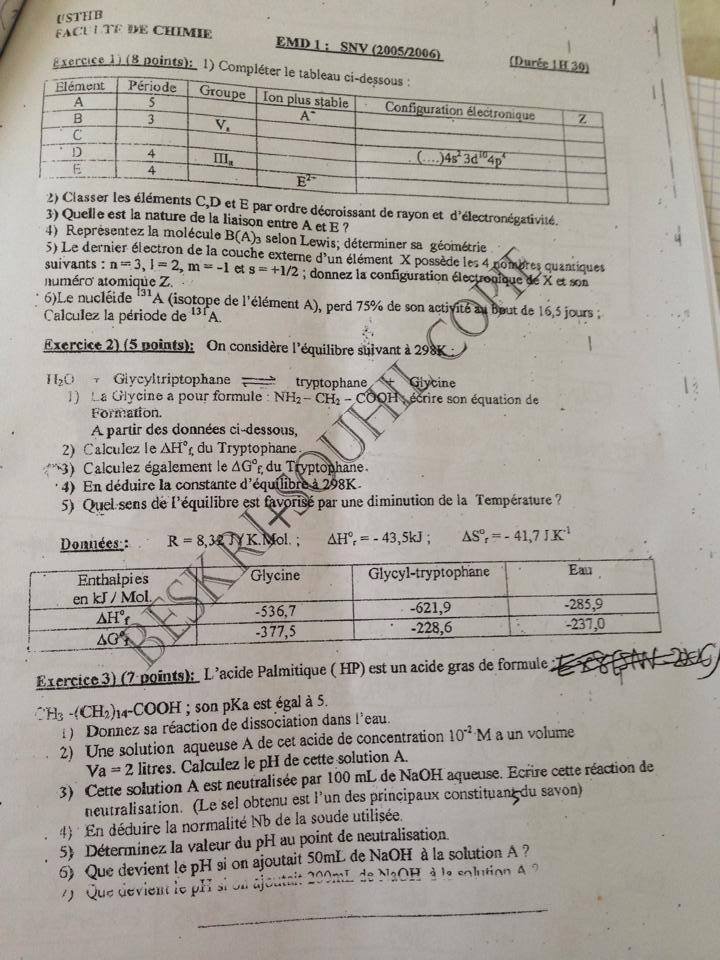 USTHB
FACULTE DE CHIMIE
EMD 1 : SNV (2005/2006)
(Durée 1H 30)
Exercice 1) (8 points): 1) Compléter le tableau ci-dessous :
Elément Période Groupe Ion plus stable Configuration électronique Z
A 5 A⁻
B 3 Vₐ
C (....)4s² 3d¹⁰ 4p⁴
D 4 IIIₐ
E 4 E²⁻
2) Classer les éléments C,D et E par ordre décroissant de rayon et d'électronégativité.
3) Quelle est la nature de la liaison entre A et E ?
4) Représentez la molécule B(A)₃ selon Lewis; déterminer sa géométrie
5) Le dernier électron de la couche externe d'un élément X possède les 4 nombres quantiques
suivants : n = 3, l = 2, m = -1 et s = +1/2 ; donnez la configuration électronique de X et son
numéro atomique Z.
6)Le nucléide ¹³¹A (isotope de l'élément A), perd 75% de son activité au bout de 16,5 jours ;
Calculez la période de ¹³¹A.
Exercice 2) (5 points): On considère l'équilibre suivant à 298K :
H₂O + Glycyltriptophane ⇌ tryptophane + Glycine
1) La Glycine a pour formule : NH₂ – CH₂ – COOH , écrire son équation de
Formation.
A partir des données ci-dessous,
2) Calculez le ΔH°f du Tryptophane.
3) Calculez également le ΔG°f du Tryptophane.
4) En déduire la constante d'équilibre à 298K.
5) Quel sens de l'équilibre est favorisé par une diminution de la Température ?
Données : R = 8,32 J/ K.Mol. ; ΔH°r = - 43,5kJ ; ΔS°r = - 41,7 J K⁻¹
Enthalpies
en kJ / Mol. Glycine Glycyl-tryptophane Eau
ΔH°f -536,7 -621,9 -285,9
ΔG°f -377,5 -228,6 -237,0
BESKRI+SOUHIL COPY
Exercice 3) (7 points): L'acide Palmitique ( HP) est un acide gras de formule :
CH₃ -(CH₂)₁₄-COOH ; son pKa est égal à 5.
1) Donnez sa réaction de dissociation dans l'eau.
2) Une solution aqueuse A de cet acide de concentration 10⁻² M a un volume
Va = 2 litres. Calculez le pH de cette solution A.
3) Cette solution A est neutralisée par 100 mL de NaOH aqueuse. Ecrire cette réaction de
neutralisation. (Le sel obtenu est l'un des principaux constituants du savon)
4) En déduire la normalité Nb de la soude utilisée.
5) Déterminez la valeur du pH au point de neutralisation.
6) Que devient le pH si on ajoutait 50mL de NaOH à la solution A ?
7) Que devient le pH si on ajoutait 200mL de NaOH à la solution A ?